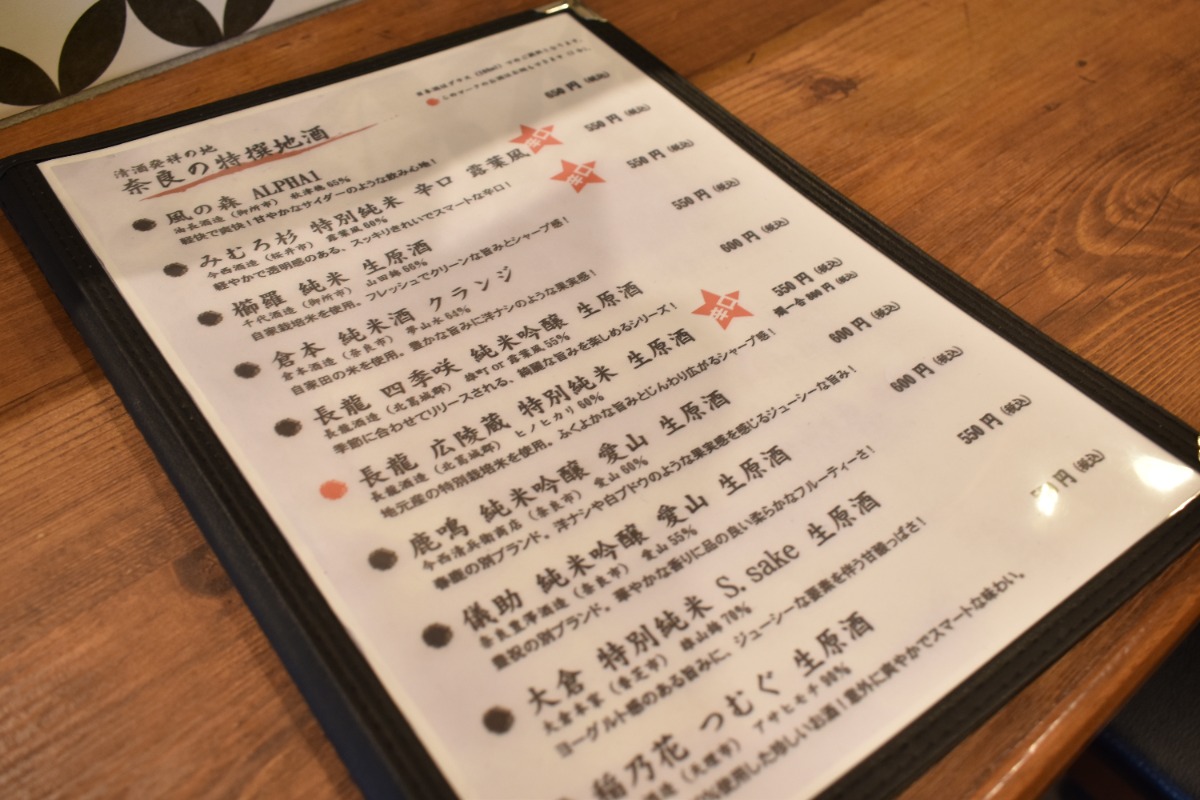 清酒発祥の地
奈良の特撰地酒
650円 (税込)
風の森 ALPHA1
油長酒造 (御所市) 秋津穂 65%
軽快で爽快！甘やかなサイダーのような飲み心地！
みむろ杉 特別純米 辛口 露葉風 辛口 550円 (税込)
今西酒造 (桜井市) 露葉風 60%
軽やかで透明感のある、スッキリきれいでスマートな辛口！
櫛羅 純米 生原酒 辛口 550円 (税込)
千代酒造 (御所市) 山田錦 66%
自家栽培米を使用。フレッシュでクリーンな旨みとシャープ感！
倉本 純米酒 クランジ 550円 (税込)
倉本酒造 (奈良市) 夢山水 64%
自家田の米を使用。豊かな旨みに洋ナシのような果実感！
長龍 四季咲 純米吟醸 生原酒 600円 (税込)
長龍酒造 (北葛城郡) 雄町or露葉風 55%
季節に合わせてリリースされる、綺麗な旨みを楽しめるシリーズ！
長龍 広陵蔵 特別純米 生原酒 辛口 550円 (税込)
長龍酒造 (北葛城郡) ヒノヒカリ 60%
地元産の特別栽培米を使用。ふくよかな旨みとじんわり広がるシャープ感！
鹿鳴 純米吟醸 愛山 生原酒 600円 (税込)
今西清兵衛商店 (奈良市) 愛山 60%
春鹿の別ブランド。洋ナシや白ブドウのような果実感を感じるジューシーな旨み！
儀助 純米吟醸 愛山 生原酒 600円 (税込)
奈良豊澤酒造 (奈良市) 愛山 55%
豊祝の別ブランド。華やかな香りに品の良い柔らかなフルーティーさ！
大倉 特別純米 S. sake 生原酒 550円 (税込)
大倉本家 (香芝市) 雄山錦 70%
ヨーグルト感のある旨みに、ジューシーな要素を伴う甘酸っぱさ！
稲乃花 つむぐ 生原酒 円 (税込)
アサヒモチ 90%
使用した珍しいお酒！意外に爽やかでスマートな味わい。